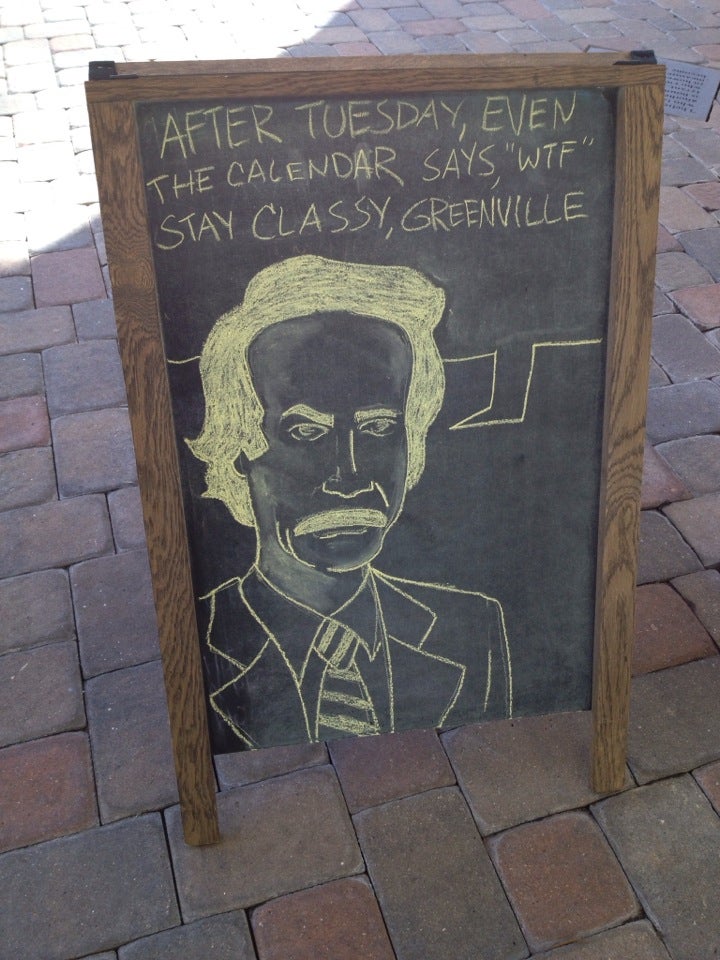 AFTER TUESDAY, EVEN
THE CALENDAR SAYS, "WTF"
STAY CLASSY, GREENVILLE